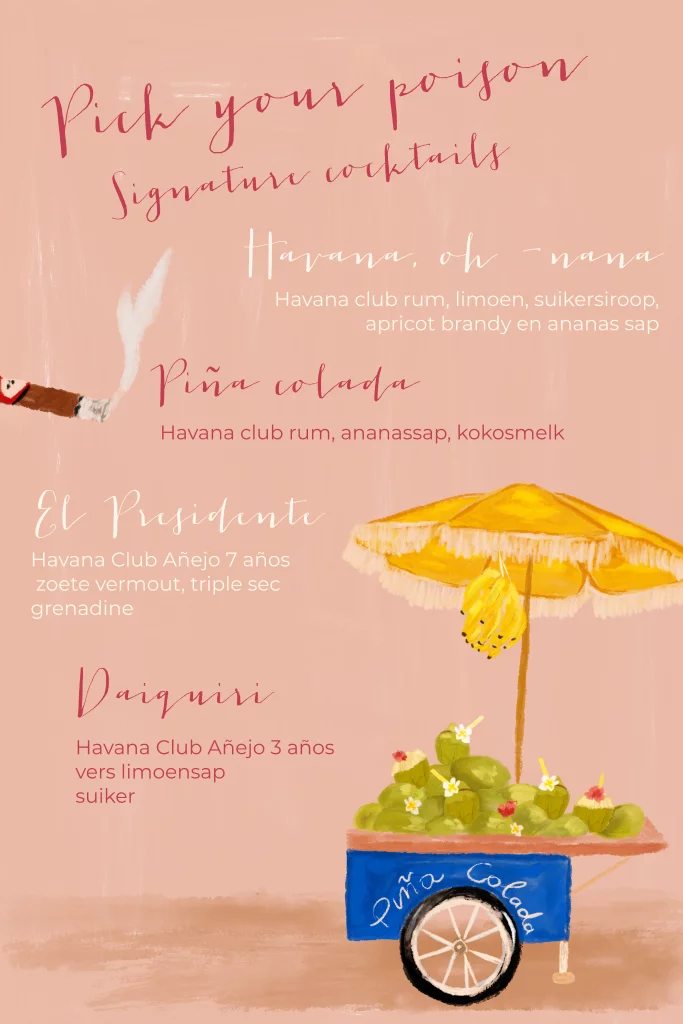 Pick your poison
Signature cocktails
Havana, oh -nana
Havana club rum, limoen, suikersiroop,
apricot brandy en ananas sap
Piña colada
Havana club rum, ananassap, kokosmelk
El Presidente
Havana Club Añejo 7 años
zoete vermout, triple sec
grenadine
Daiquiri
Havana Club Añejo 3 años
vers limoensap
suiker
Piña Colada